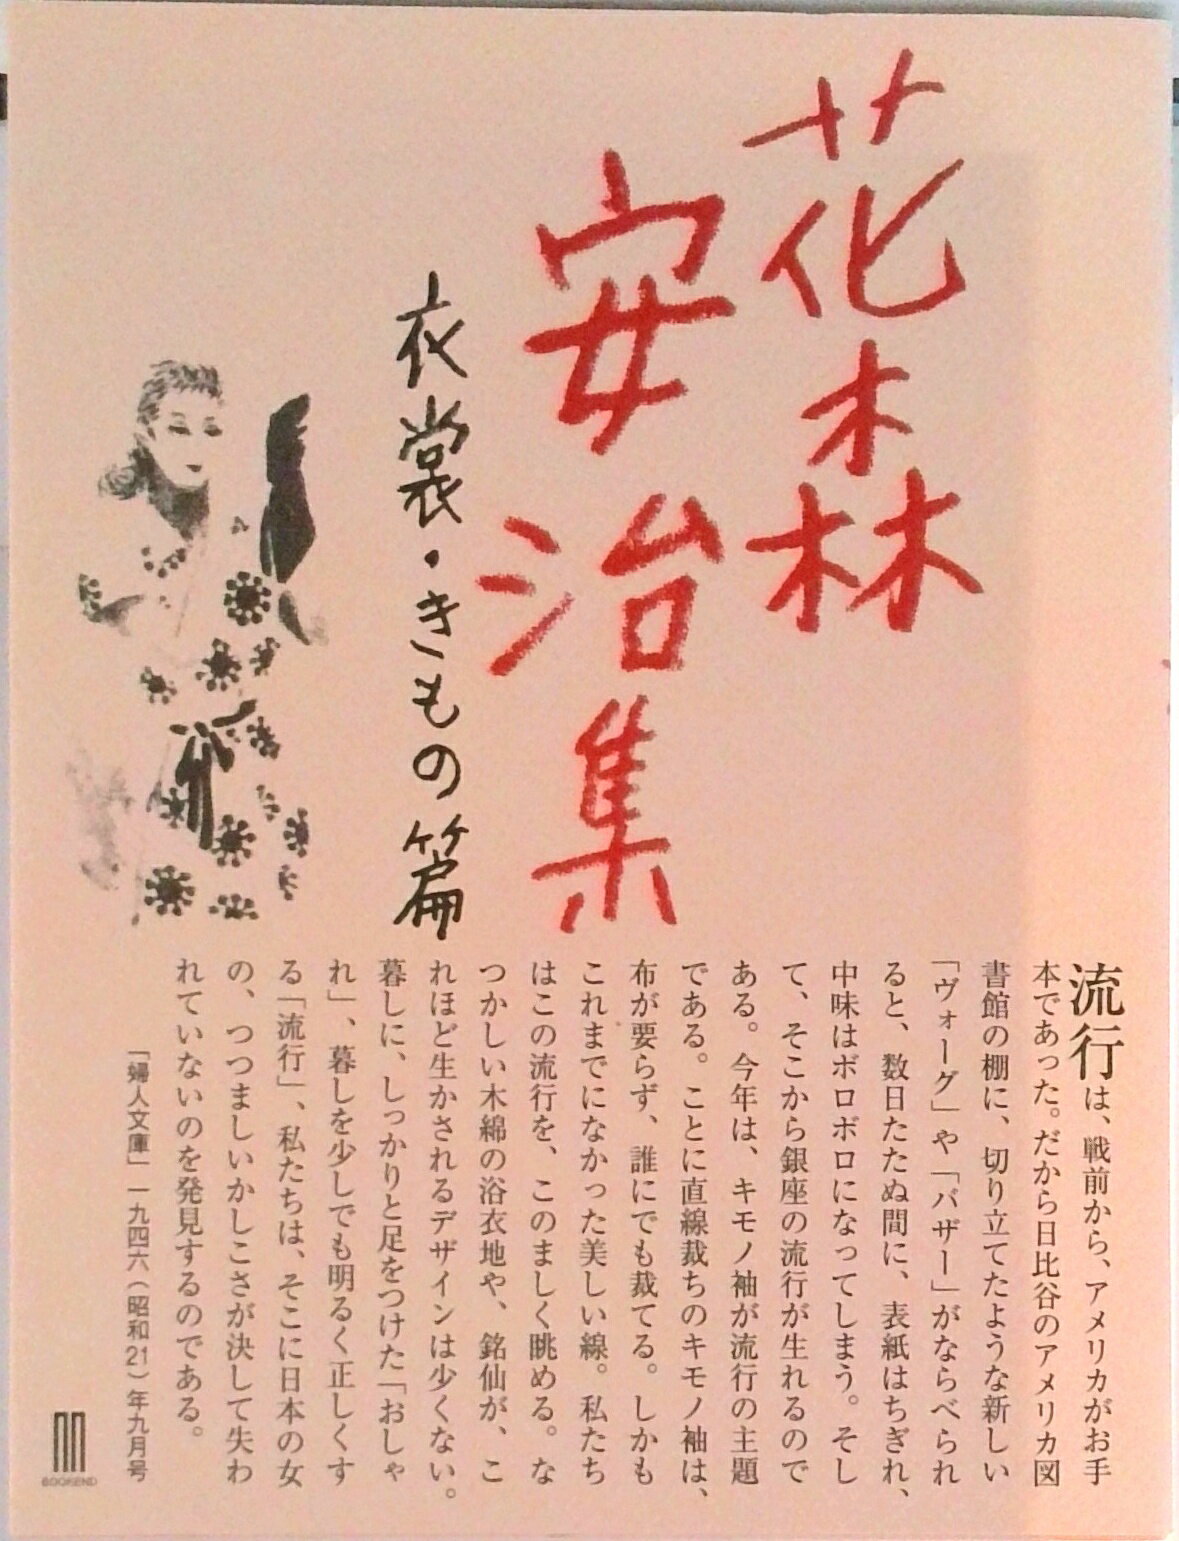 花森
安治集
衣裳・きもの篇
流行は、戦前から、アメリカがお手
本であった。だから日比谷のアメリカ図
書館の棚に、切り立てたような新しい
「ヴォーグ」や「バザー」がならべられ
ると、数日たたぬ間に、表紙はちぎれ、
中味はボロボロになってしまう。そし
て、そこから銀座の流行が生れるので
ある。今年は、キモノ袖が流行の主題
である。ことに直線裁ちのキモノ袖は、
布が要らず、誰にでも裁てる。しかも
これまでになかった美しい線。私たち
はこの流行を、このましく眺める。な
つかしい木綿の浴衣地や、銘仙が、こ
れほど生かされるデザインは少くない。
暮しに、しっかりと足をつけた「おしゃ
れ」、暮しを少しでも明るく正しくす
る「流行」、私たちは、そこに日本の女
の、つつましいかしこさが決して失わ
れていないのを発見するのである。
「婦人文庫」一九四六（昭和21）年九月号
BOOKEND